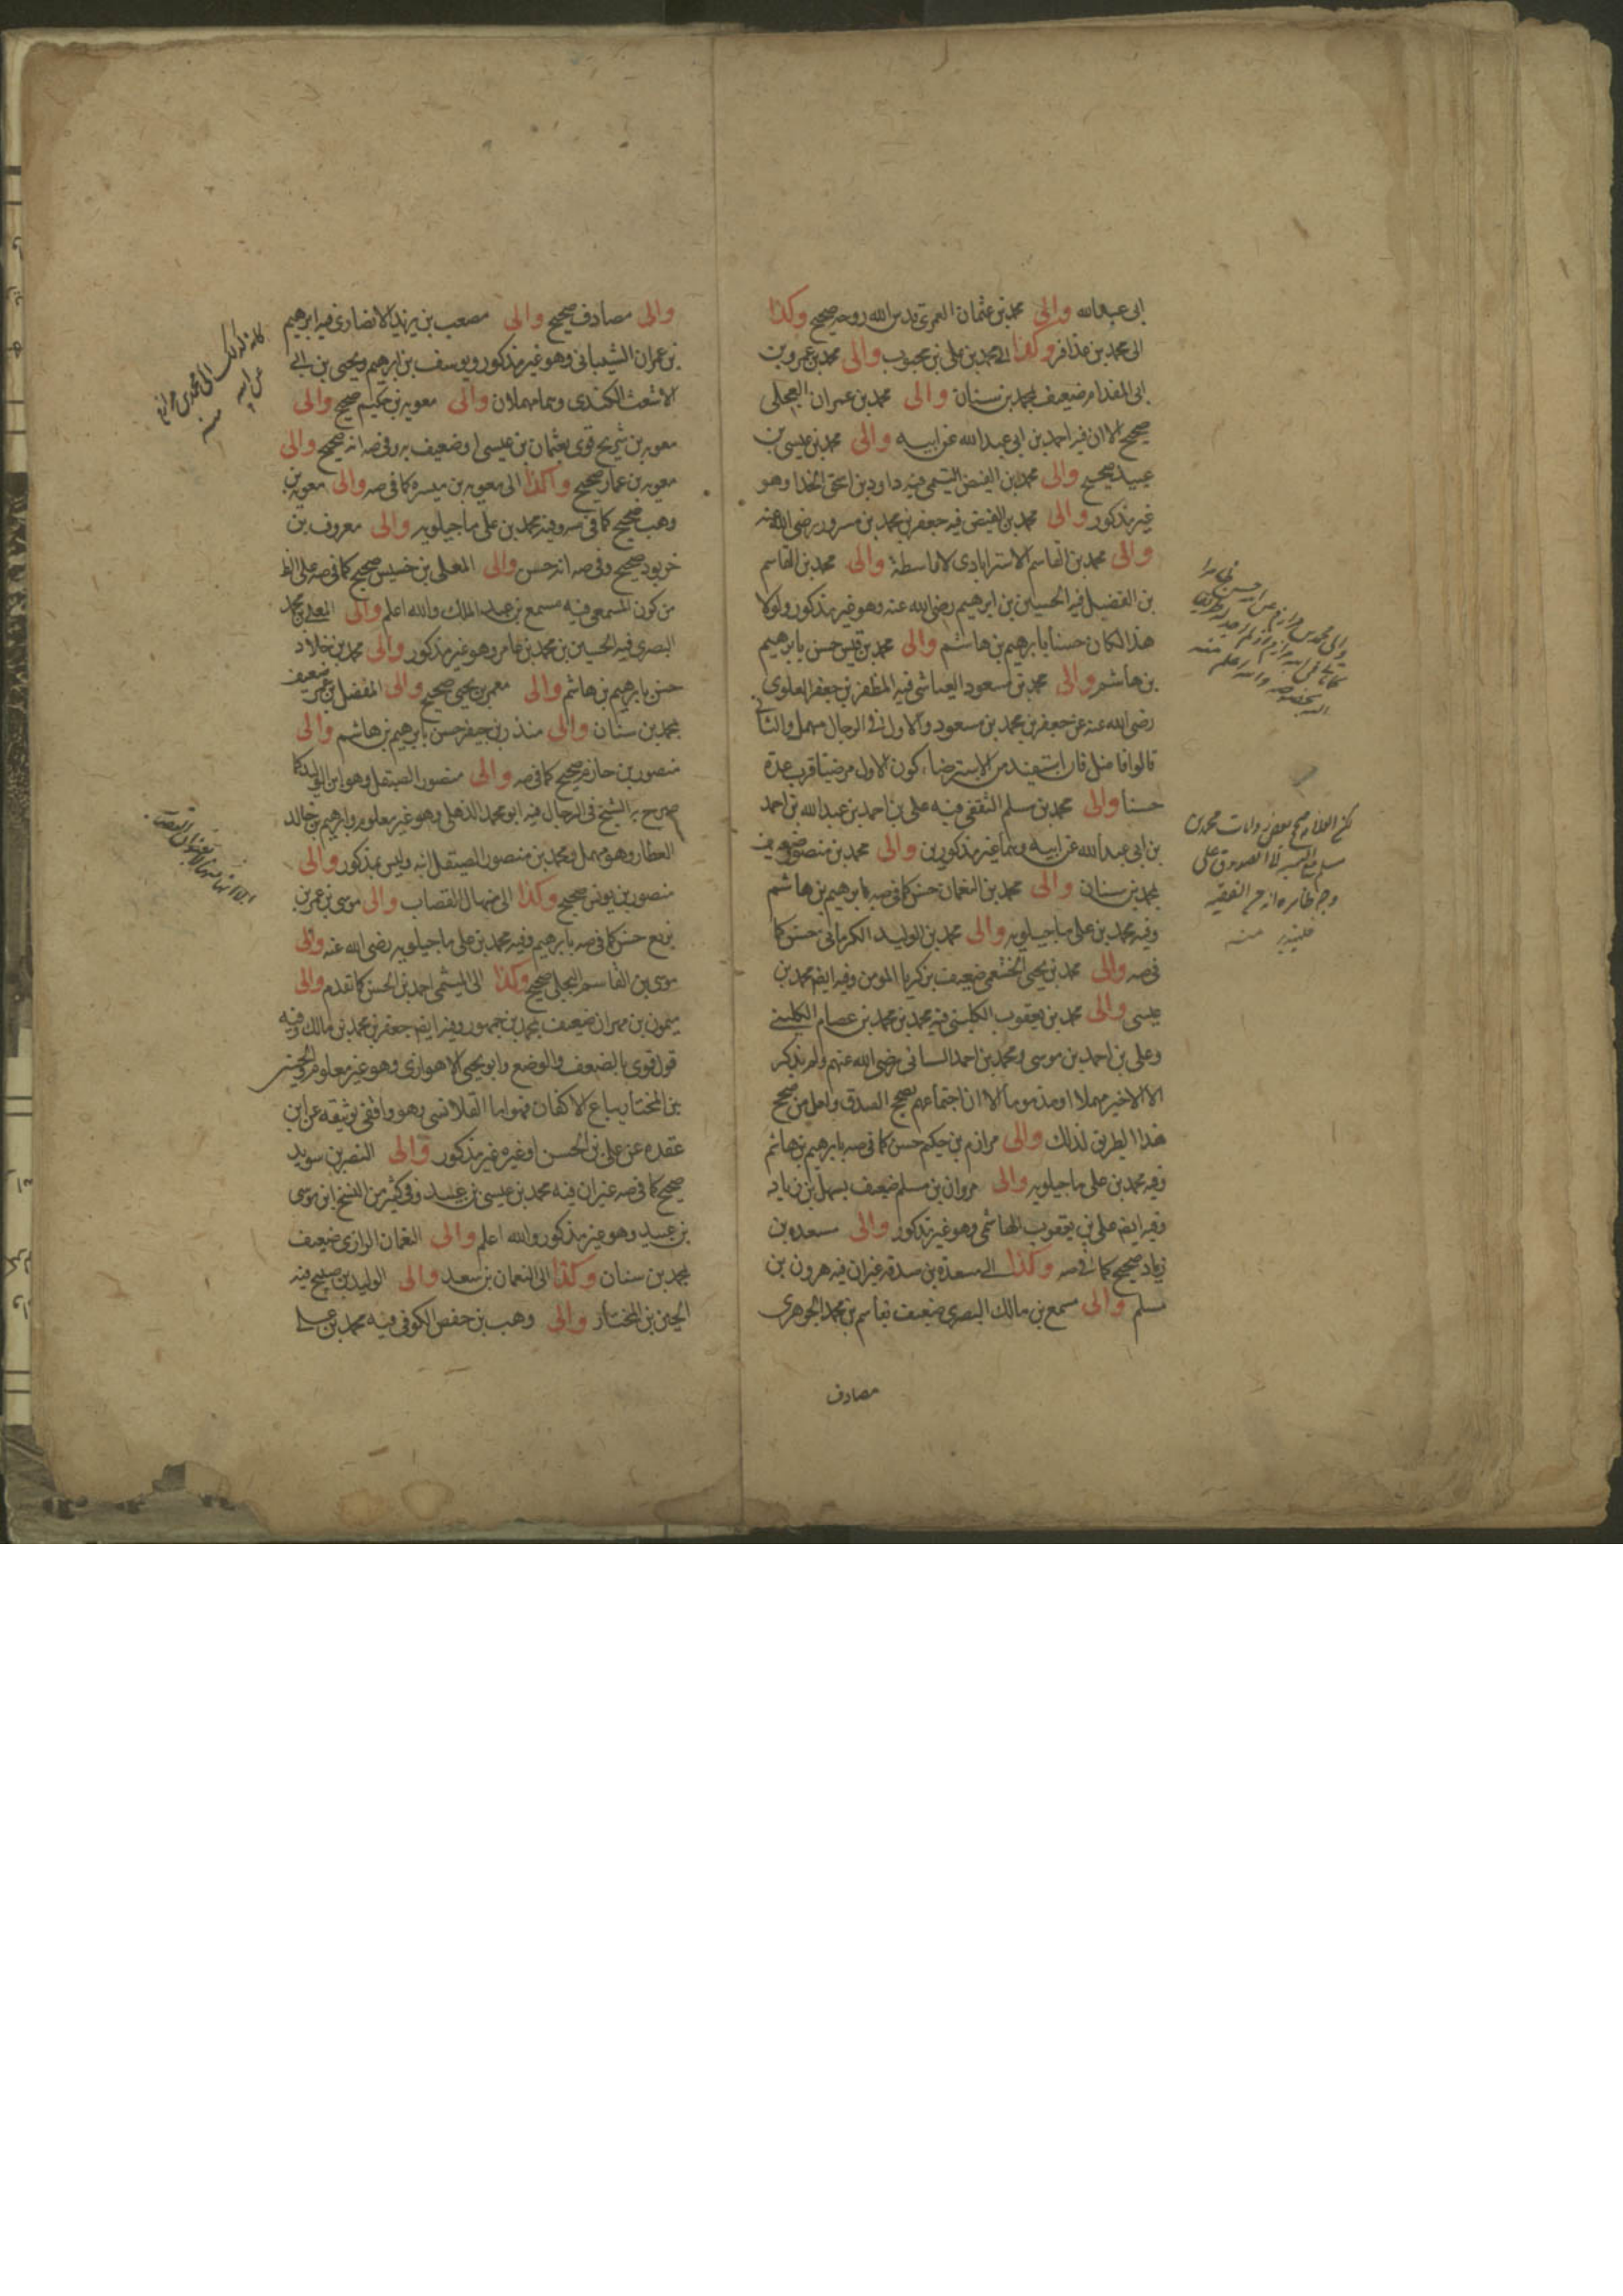 ابى عبدالله والى محمد بن عثمان العمرى قدس الله روحه صحيح وكذا
الى محمد بن عذافر وكذا الى محمد بن على بن محبوب والى محمد بن عمرو بن
ابى المقدام ضعيف بمحمد بن سنان والى محمد بن عمران العجلى
صحيح الا ان فيه احمد بن ابى عبدالله عن ابيه والى محمد بن عيسى بن
عبيد صحيح والى محمد بن الفيض التيمى فيه داود بن اسحق الحذا وهو
غير مذكور والى محمد بن الفيض فيه جعفر بن محمد بن مسرور رضى الله عنه
والى محمد بن القاسم الاسترابادى لا واسطة والى محمد بن القاسم
بن الفضيل فيه الحسين بن ابرهيم رضى الله عنه وهو غير مذكور ولولا
هذا لكان حسنا بابرهيم بن هاشم والى محمد بن قيس حسن بابرهيم
بن هاشم والى محمد بن مسعود العياشى فيه المظفر بن جعفر العلوى
رضى الله عنه عن جعفر بن محمد بن مسعود والاول فى الرجال مهمل والثانى
قالوا فاضل فان استفيد من الاسترضاء كون الاول مرضيا قرب عده
حسنا والى محمد بن مسلم الثقفى فيه على بن احمد بن عبدالله بن احمد
بن ابى عبدالله عن ابيه وهما غير مذكورين والى محمد بن منصور ضعيف
بمحمد بن سنان والى محمد بن النعمان حسن كما فى صه بابرهيم بن هاشم
وفيه محمد بن على ماجيلويه والى محمد بن الوليد الكرمانى حسن كما
فى صه والى محمد بن يحيى الخثعمى ضعيف بزكريا المومن وفيه ايضا محمد بن
عيسى والى محمد بن يعقوب الكلينى فيه محمد بن محمد بن عصام الكلينى
وعلى بن احمد بن موسى ومحمد بن احمد السنانى رضى الله عنهم ولم يذكر
الا الاخير مهملا او مذموما الا ان اجتماعهم يصحح الصدق ولعل من صحح
هذا الطريق لذلك والى مرازم بن حكيم حسن كما فى صه بابرهيم بن هاشم
وفيه محمد بن على ماجيلويه والى مروان بن مسلم ضعيف بسهل بن زياد
وفيه ايضا على بن يعقوب الهاشمى وهو غير مذكور والى مسعدة بن
زياد صحيح كما فى صه وكذا الى مسعدة بن صدقه غير ان فيه هرون بن
مسلم والى مسمع بن مالك البصرى ضعيف بقاسم بن محمد الجوهرى
مصادف
مسلم
وجه ظاهره
فليتدبر منه
والى مصادف صحيح والى مصعب بن يزيد الانصارى فيه ابرهيم
بن عمران الشيبانى وهو غير مذكور ويوسف بن ابرهيم ويحيى بن ابى
الاشعث الكندى وهما مهملان والى معويه بن حكيم صحيح والى
معويه بن شريح قوى بعثمان بن عيسى او ضعيف به وفى صه انه صحيح والى
معويه بن عمار صحيح وكذا الى معويه بن ميسره كما فى صه والى معويه بن
وهب صحيح كما فى صه وفيه محمد بن على ماجيلويه والى معروف بن
خربوذ صحيح وفى صه انه حسن والى المعلى بن خنيس صحيح كما فى صه على الظ
من كون المسمعى فيه مسمع بن عبد الملك والله اعلم والى المعلى بن محمد
البصرى فيه الحسين بن محمد بن عامر وهو غير مذكور والى معمر بن خلاد
حسن بابرهيم بن هاشم والى معمر بن يحيى صحيح والى المفضل بن عمر ضعيف
بمحمد بن سنان والى منذر بن جيفر حسن بابرهيم بن هاشم والى
منصور بن حازم صحيح كما فى صه والى منصور الصيقل وهو ابن الوليد كما
صرح به الشيخ فى الرجال فيه ابو محمد الذهلى وهو غير معلوم وابرهيم بن خالد
العطار وهو مهمل ومحمد بن منصور الصيقل ابنه وليس بمذكور والى
منصور بن يونس صحيح وكذا الى منهال القصاب والى موسى بن عمر بن
بزيع حسن كما فى صه بابرهيم وفيه محمد بن على ماجيلويه رضى الله عنه والى
موسى بن القاسم البجلى صحيح وكذا الى الميثمى احمد بن الحسن كما تقدم والى
ميمون بن مهران ضعيف بمحمد بن جمهور وفيه ايضا جعفر بن محمد بن مالك وفيه
قول قوى بالضعف والوضع وابو يحيى الاهوازى وهو غير معلوم والحسين
بن المختار بياع الاكفان فهو اما القلانسى وهو واقفى توثيقه عن ابن
عقده عن على بن الحسن او غيره غير مذكور والى النضر بن سويد
صحيح كما فى صه غير ان فيه محمد بن عيسى بن عبيد وفى كثير من النسخ ابن موسى
بن عبيد وهو غير مذكور والله اعلم والى النعمان الرازى ضعيف
بمحمد بن سنان وكذا الى النعمان بن سعد والى الوليد بن صبيح فيه
الحسين بن المختار والى وهب بن حفص الكوفى فيه محمد بن على